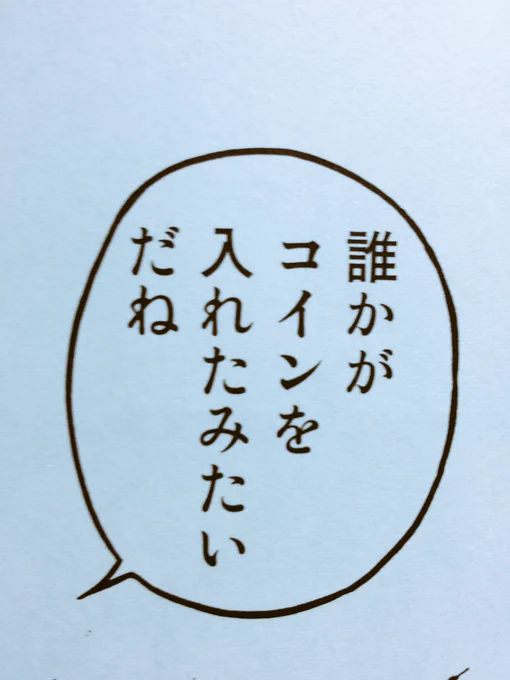 誰かが
コインを
入れたみたい
だね